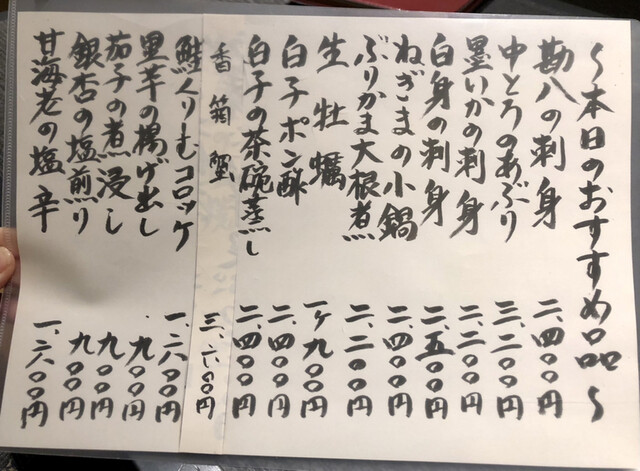 〜本日のおすすめ品〜
勘八の刺身 二、四〇〇円
中とろのあぶり 三、二〇〇円
墨いかの刺身 二、二〇〇円
白身の刺身 二、五〇〇円
ねぎまの小鍋 二、四〇〇円
ぶりかま大根煮 二、二〇〇円
生牡蠣 一ケ九〇〇円
白子ポン酢 二、四〇〇円
白子の茶碗蒸し 二、四〇〇円
香箱蟹 三、六〇〇円
鮭くりむコロッケ 一、二八〇〇円
里芋の揚げ出し 九〇〇円
茄子の煮浸し 九〇〇円
銀杏の塩煎り 九〇〇円
甘海老の塩辛 一、六〇〇円